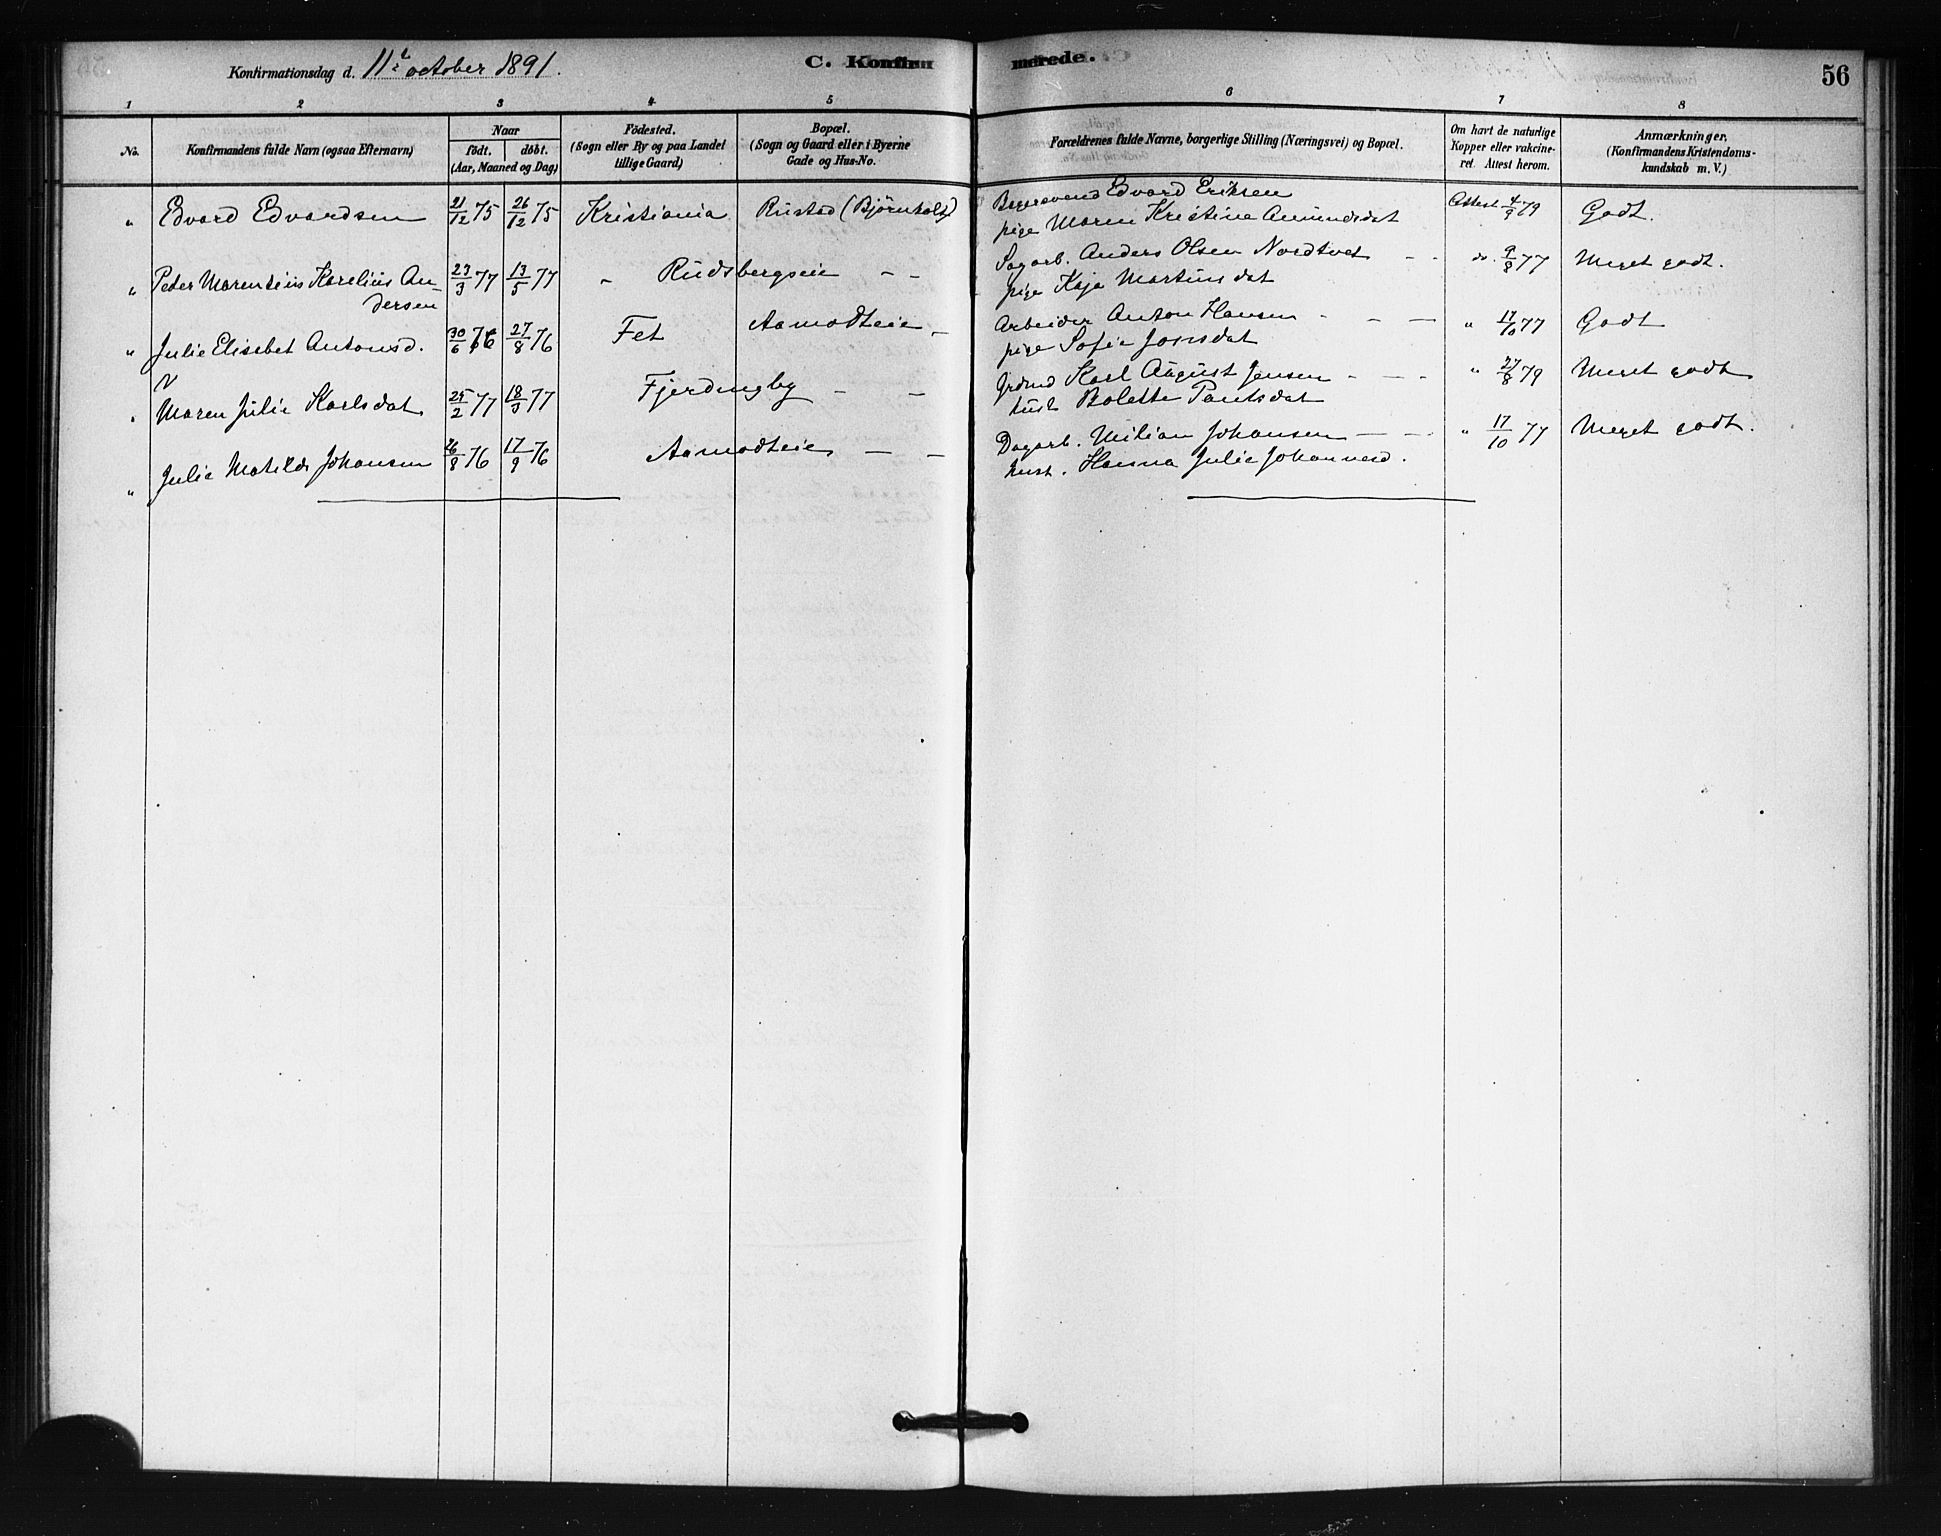 Konfirmationsdag d. 11te october 1891. C. Konfirmerede. 56
1 2 3 4 5 6 7 8
No. Konfirmandens fulde Navn (ogsaa Efternavn)
Naar
födt. döbt.
(Aar, Maaned og Dag)
Födested.
(Sogn eller By og paa Landet
tillige Gaard)
Bopæl.
(Sogn og Gaard eller i Byerne
Gade og Hus-No.
Forældrenes fulde Navne, borgerlige Stilling (Næringsvei) og Bopæl.
Om havt de naturlige
Kopper eller vakcine-
ret. Attest herom.
Anmærkninger,
(Konfirmandens Kristendoms-
kundskab m. V.)
" Edvard Edvardsen 21/12 75 26/12 75 Kristiania Rustad (Bjørnholt) Edvard Eriksen Attest 4/9 79 Godt.
pige Maren Kristine Amundsdat
" Peter Marentius Karelius An- 23/3 77 13/5 77 " Rudsbergseie — — Sagarb. Anders Olsen Nordtvet - - do. 9/8 77 Meget godt.
dersen pige Kaja Martinsdat
" Julie Elisebet Antonsd. 30/6 76 27/8 76 Fet Aamodteie — Arbeider Anton Hansen - — — " 17/10 77 Godt
pige Sofie Jonsdat
V
" Maren Julie Karlsdat 25/2 77 18/3 77 Fjerdingby — — Karl August Jensen - — - " 27/8 79 Meget godt
Bolette Paulsdat
" Julie Matilde Johansen 26/8 76 17/9 76 Aamodteie — — Dagarb. Milian Johansen — — " 17/10 77 Meget godt.
hust. Hanna Julie Johannesd.